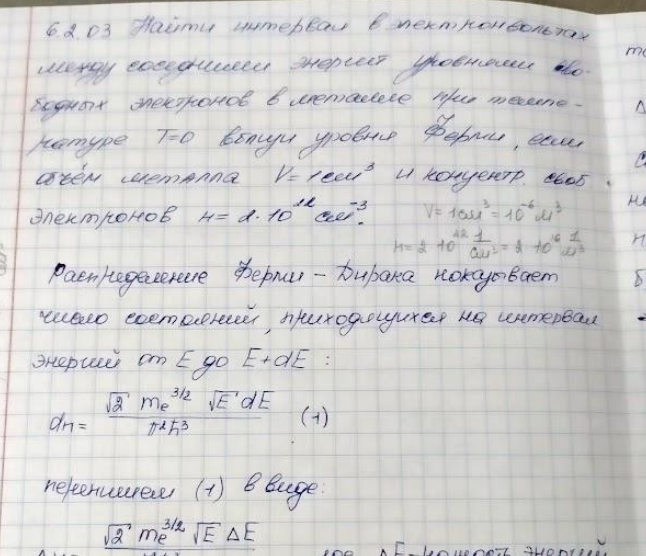 6.2.03 Найти интервал в электронвольтах
между соседними энергий уровнями сво-
бодных электронов в металле при темпе-
ратуре T=0 вблизи уровня Ферми, если
объём металла V=1см³ и концентр. своб
электронов n=2·10²² см⁻³.
V=1см³=10⁻⁶м³
n=2·10²² 1/см³=2·10¹⁶ 1/м³
Распределение Ферми-Дирака показывает
число состояний, приходящихся на интервал
энергий от E до E+dE:
dn= √2 me^3/2 √E dE / π²ħ³ (1)
перепишем (1) в виде:
√2 me^3/2 √E ΔE
где ΔE-разность энергий